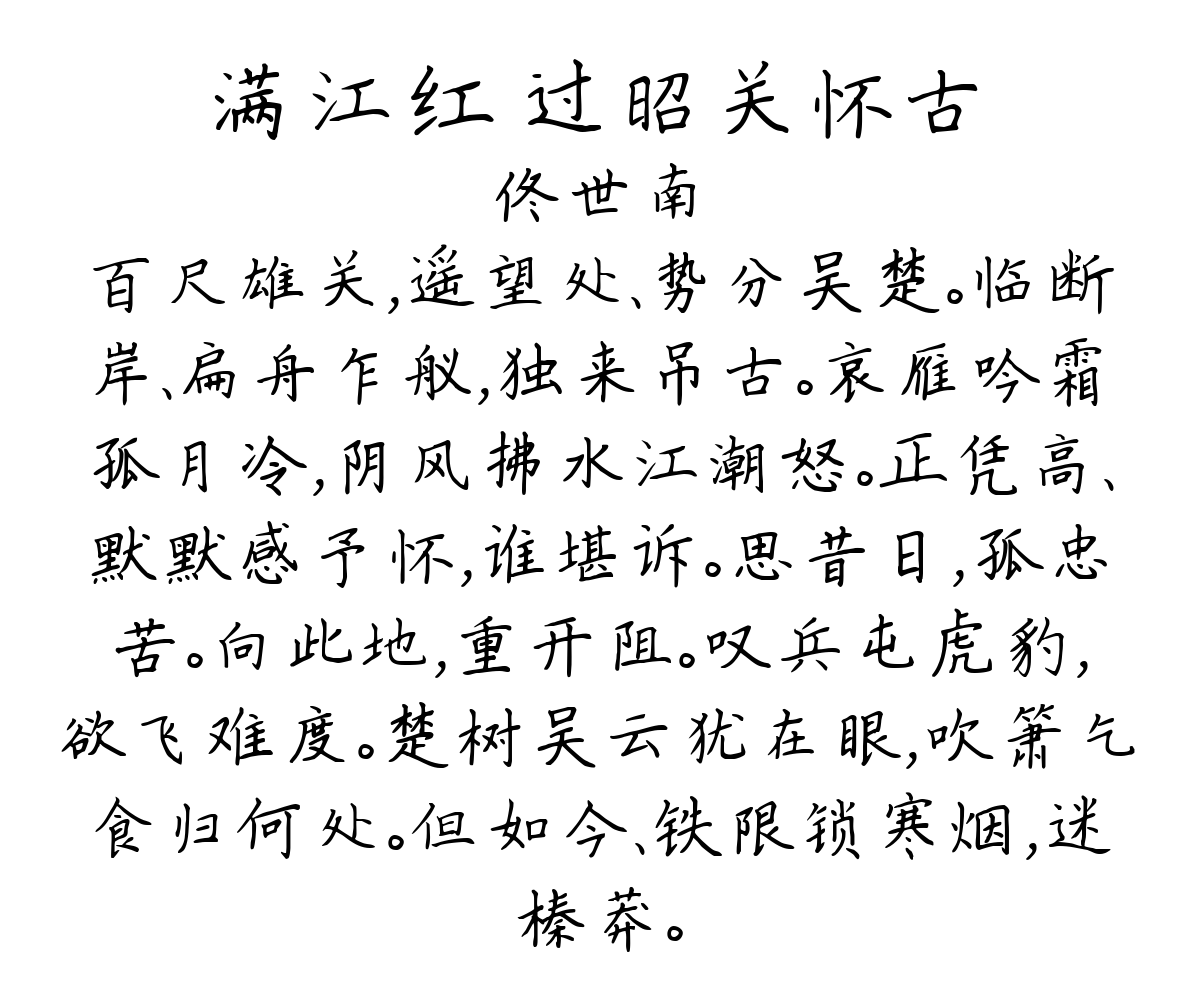 满江红 过昭关怀古
佟世南
百尺雄关,遥望处、势分吴楚。临断
岸、扁舟乍舣,独来吊古。哀雁吟霜
孤月冷,阴风拂水江潮怒。正凭高、
默默感予怀,谁堪诉。思昔日,孤忠
苦。向此地,重开阻。叹兵屯虎豹,
欲飞难度。楚树吴云犹在眼,吹箫乞
食归何处。但如今、铁限锁寒烟,迷
榛莽。